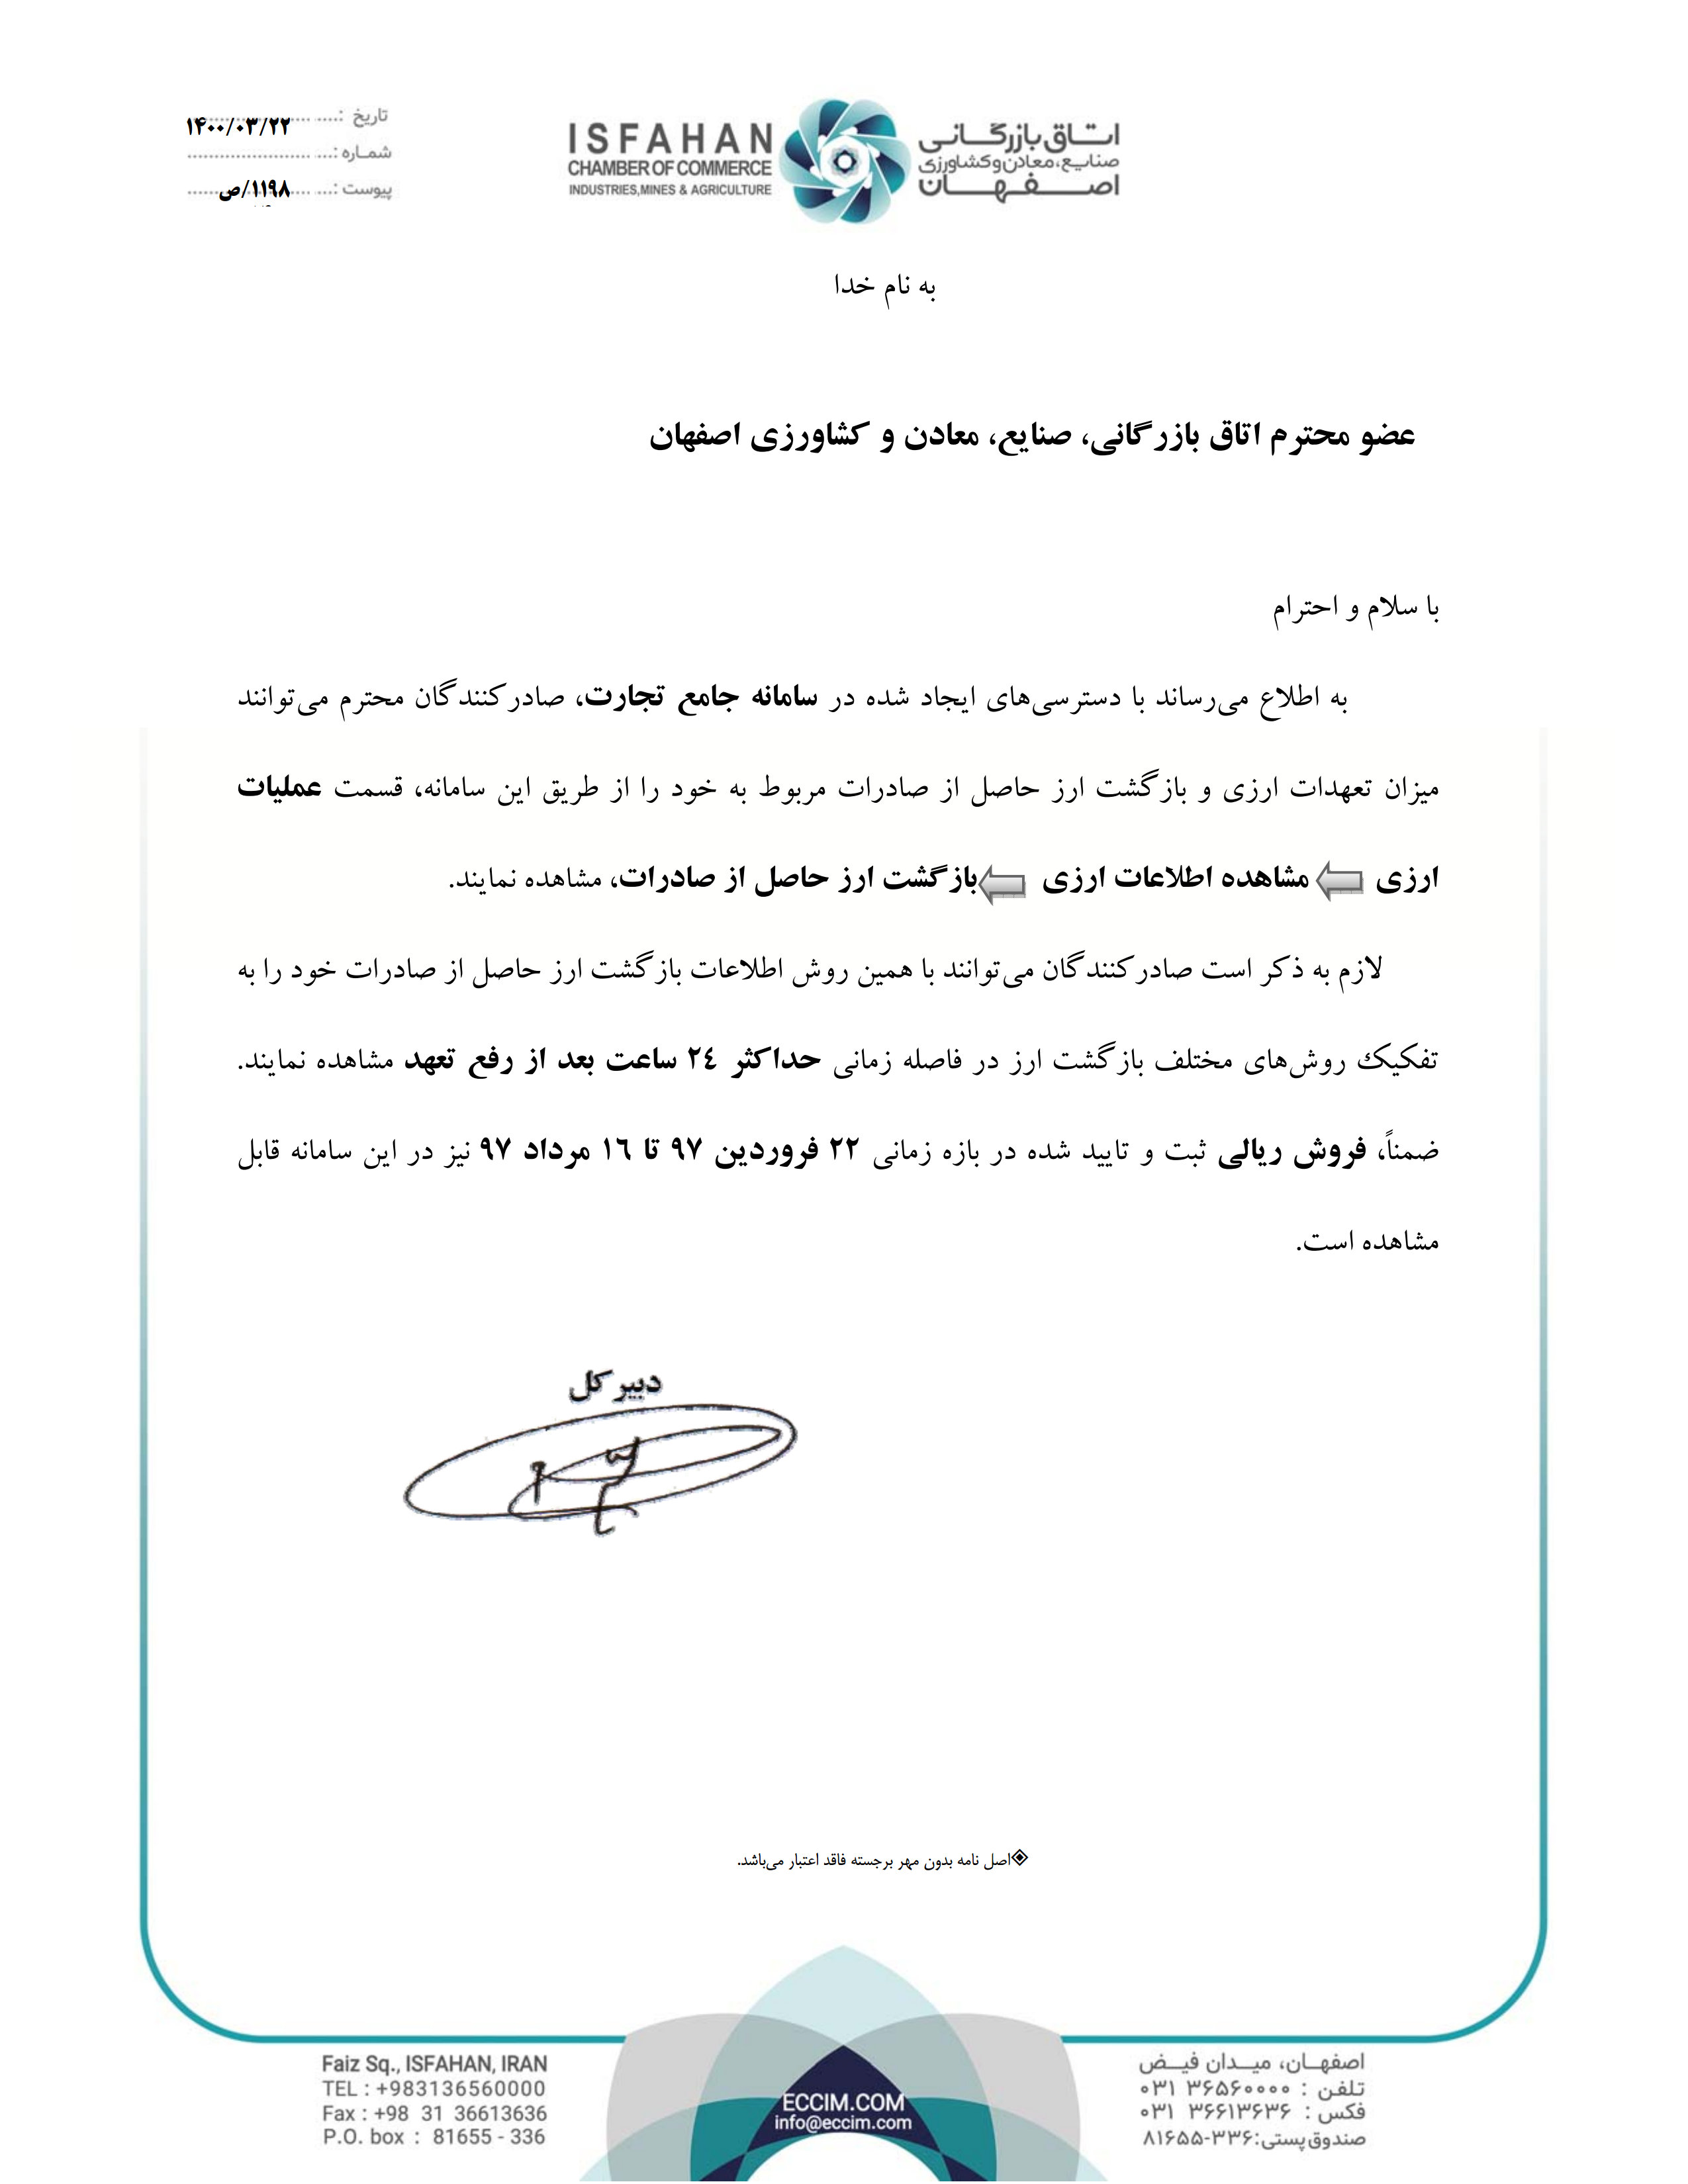 تاریخ :
۱۴۰۰/۰۳/۲۲
شماره :
پیوست :
۱۱۹۸/ص
ISFAHAN
CHAMBER OF COMMERCE
INDUSTRIES,MINES & AGRICULTURE
اتاق بازرگانی
صنایع، معادن و کشاورزی
اصفهان
به نام خدا
عضو محترم اتاق بازرگانی، صنایع، معادن و کشاورزی اصفهان
با سلام و احترام
به اطلاع می‌رساند با دسترسی‌های ایجاد شده در سامانه جامع تجارت، صادرکنندگان محترم می‌توانند
میزان تعهدات ارزی و بازگشت ارز حاصل از صادرات مربوط به خود را از طریق این سامانه، قسمت عملیات
ارزی ⇦ مشاهده اطلاعات ارزی ⇦ بازگشت ارز حاصل از صادرات، مشاهده نمایند.
لازم به ذکر است صادرکنندگان می‌توانند با همین روش اطلاعات بازگشت ارز حاصل از صادرات خود را به
تفکیک روش‌های مختلف بازگشت ارز در فاصله زمانی حداکثر ٢٤ ساعت بعد از رفع تعهد مشاهده نمایند.
ضمناً، فروش ریالی ثبت و تایید شده در بازه زمانی ٢٢ فروردین ٩٧ تا ١٦ مرداد ٩٧ نیز در این سامانه قابل
مشاهده است.
دبیر کل
◈اصل نامه بدون مهر برجسته فاقد اعتبار می‌باشد.
Faiz Sq., ISFAHAN, IRAN
TEL : +983136560000
Fax : +98 31 36613636
P.O. box : 81655 - 336
ECCIM.COM
info@eccim.com
اصفهان، میدان فیض
تلفن : ۳۶۵۶۰۰۰۰ ۰۳۱
فکس : ۳۶۶۱۳۶۳۶ ۰۳۱
صندوق پستی: ۸۱۶۵۵-۳۳۶